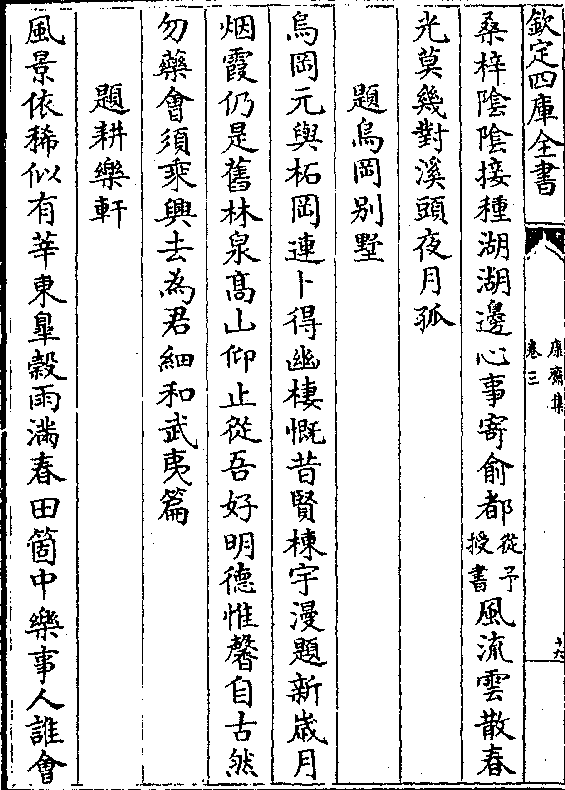 欽定四庫全書
康齋集
卷三
十六
桑梓陰陰接種湖湖邊心事寄俞都從予授書風流雲散春
光莫幾對溪頭夜月孤
題烏岡別墅
烏岡元與柘岡連卜得幽棲慨昔賢棟宇漫題新歲月
烟霞仍是舊林泉髙山仰止從吾好明德惟馨自古然
勿藥會須乘興去為君細和武夷篇
題耕樂軒
風景依稀似有莘東臯穀雨滿春田箇中樂事人誰會